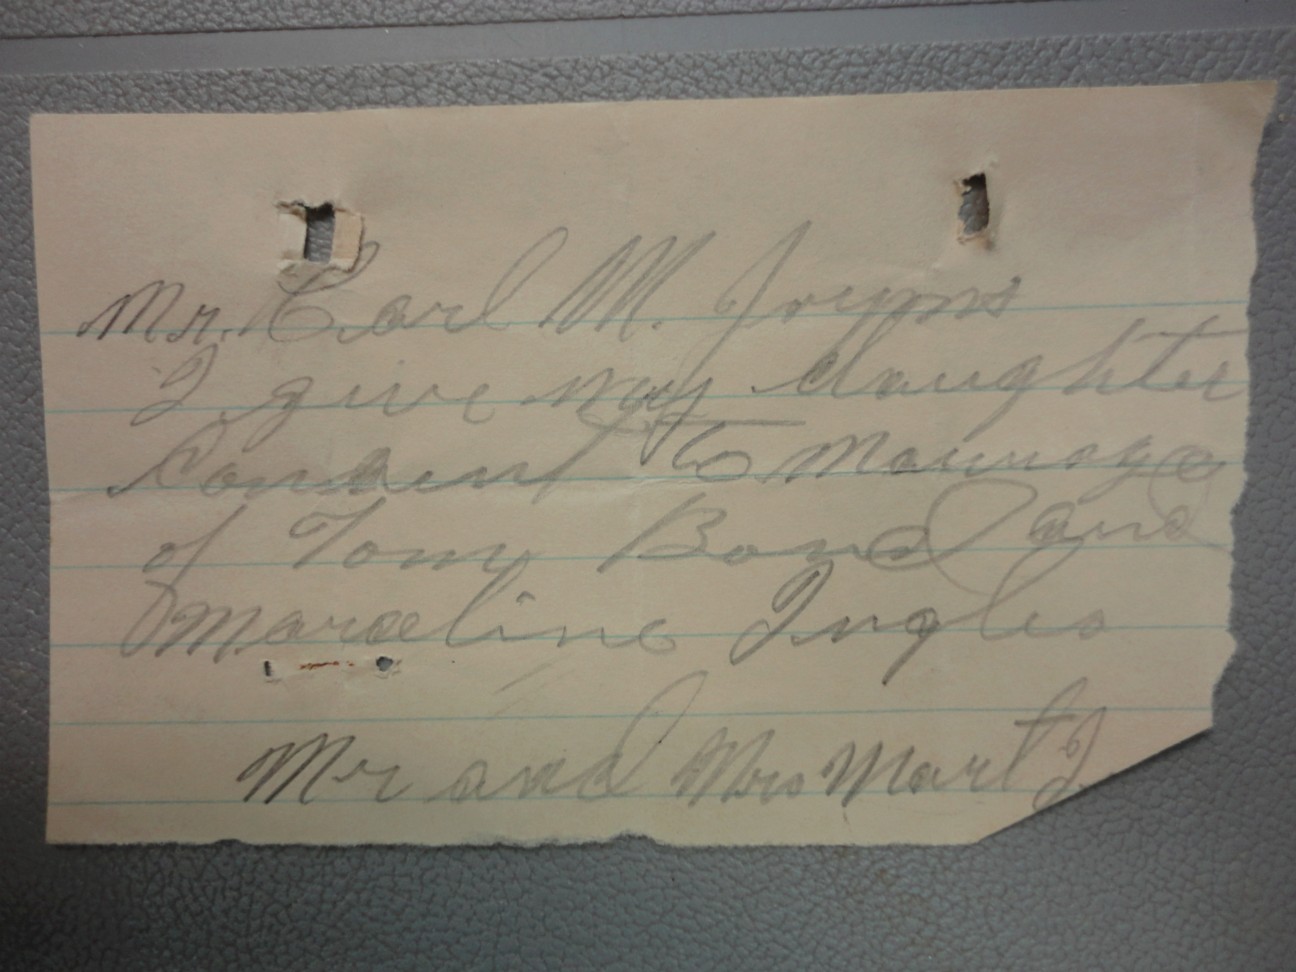 Mr. Carl M. Joyns
I give my daughter
Consent to Marriage
of Tom Bond and
Maraeline Ingles
Mr and Mrs Mart I